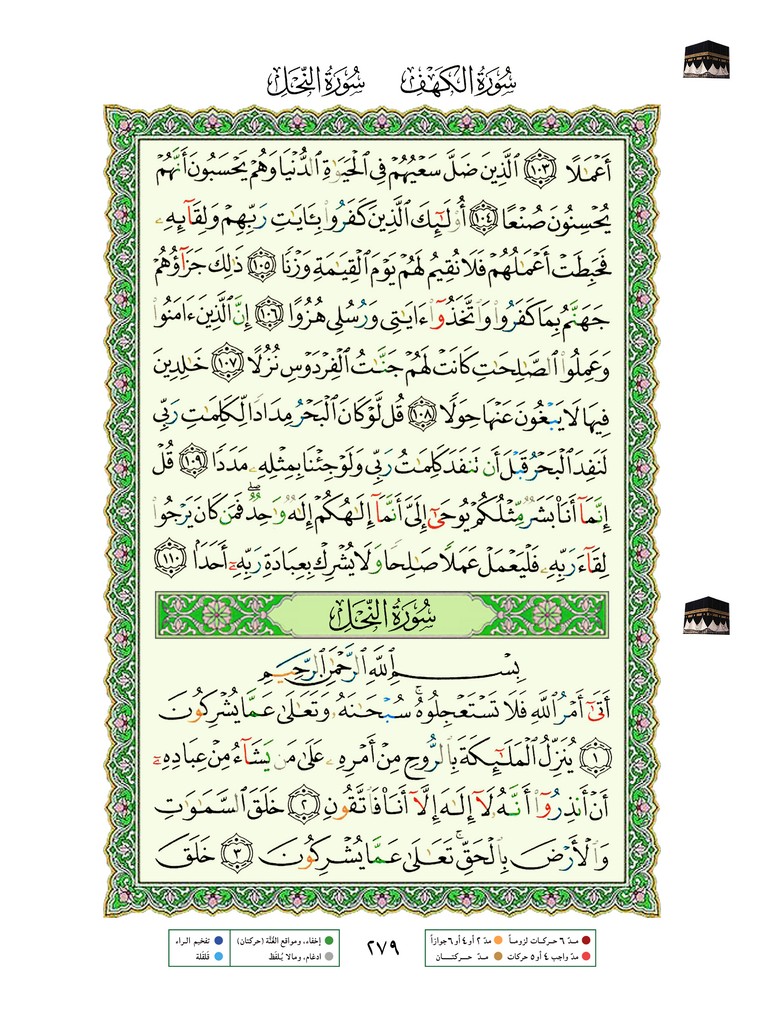 سُورَةُ الكَهْف سُورَةُ النَّحْل
أَعْمَٰلًا ١٠٣ ٱلَّذِينَ ضَلَّ سَعْيُهُمْ فِي ٱلْحَيَوٰةِ ٱلدُّنْيَا وَهُمْ يَحْسَبُونَ أَنَّهُمْ
يُحْسِنُونَ صُنْعًا ١٠٤ أُو۟لَٰٓئِكَ ٱلَّذِينَ كَفَرُوا۟ بِـَٔايَٰتِ رَبِّهِمْ وَلِقَآئِهِۦ
فَحَبِطَتْ أَعْمَٰلُهُمْ فَلَا نُقِيمُ لَهُمْ يَوْمَ ٱلْقِيَٰمَةِ وَزْنًا ١٠٥ ذَٰلِكَ جَزَآؤُهُمْ
جَهَنَّمُ بِمَا كَفَرُوا۟ وَٱتَّخَذُوٓا۟ ءَايَٰتِي وَرُسُلِي هُزُوًا ١٠٦ إِنَّ ٱلَّذِينَ ءَامَنُوا۟
وَعَمِلُوا۟ ٱلصَّٰلِحَٰتِ كَانَتْ لَهُمْ جَنَّٰتُ ٱلْفِرْدَوْسِ نُزُلًا ١٠٧ خَٰلِدِينَ
فِيهَا لَا يَبْغُونَ عَنْهَا حِوَلًا ١٠٨ قُل لَّوْ كَانَ ٱلْبَحْرُ مِدَادًا لِّكَلِمَٰتِ رَبِّي
لَنَفِدَ ٱلْبَحْرُ قَبْلَ أَن تَنفَدَ كَلِمَٰتُ رَبِّي وَلَوْ جِئْنَا بِمِثْلِهِۦ مَدَدًا ١٠٩ قُلْ
إِنَّمَآ أَنَا۠ بَشَرٌ مِّثْلُكُمْ يُوحَىٰٓ إِلَيَّ أَنَّمَآ إِلَٰهُكُمْ إِلَٰهٌ وَٰحِدٌ ۖ فَمَن كَانَ يَرْجُوا۟
لِقَآءَ رَبِّهِۦ فَلْيَعْمَلْ عَمَلًا صَٰلِحًا وَلَا يُشْرِكْ بِعِبَادَةِ رَبِّهِۦٓ أَحَدًۢا ١١٠
سُورَةُ النَّحْل
بِسْمِ ٱللَّهِ ٱلرَّحْمَٰنِ ٱلرَّحِيمِ
أَتَىٰٓ أَمْرُ ٱللَّهِ فَلَا تَسْتَعْجِلُوهُ ۚ سُبْحَٰنَهُۥ وَتَعَٰلَىٰ عَمَّا يُشْرِكُونَ
١ يُنَزِّلُ ٱلْمَلَٰٓئِكَةَ بِٱلرُّوحِ مِنْ أَمْرِهِۦ عَلَىٰ مَن يَشَآءُ مِنْ عِبَادِهِۦٓ
أَنْ أَنذِرُوٓا۟ أَنَّهُۥ لَآ إِلَٰهَ إِلَّآ أَنَا۠ فَٱتَّقُونِ ٢ خَلَقَ ٱلسَّمَٰوَٰتِ
وَٱلْأَرْضَ بِٱلْحَقِّ ۚ تَعَٰلَىٰ عَمَّا يُشْرِكُونَ ٣ خَلَقَ
مدّ ٦ حركات لزوماً مدّ ٢ أو ٤ أو ٦ جوازاً ٢٧٩ إخفاء، ومواقع الغُنَّة (حركتان) تفخيم الراء
مدّ واجب ٤ أو ٥ حركات مدّ حركتان ادغام، ومالا يُلفَظ قلقلة